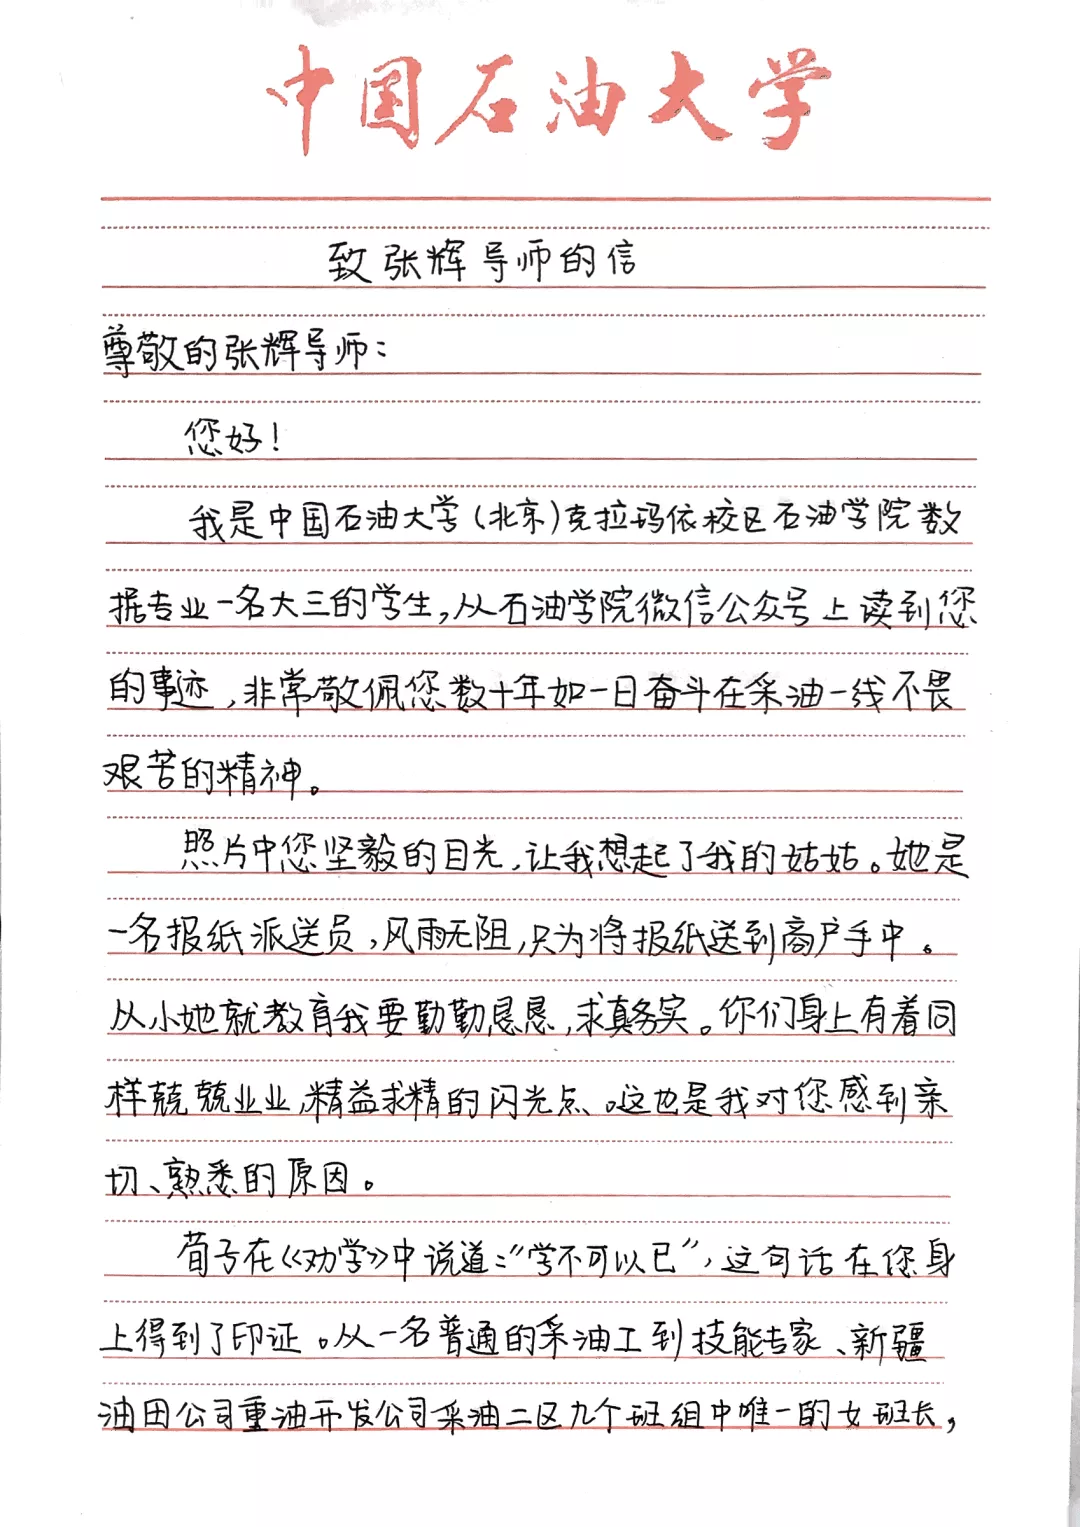 中国石油大学
致张辉导师的信
尊敬的张辉导师：
您好！
我是中国石油大学（北京）克拉玛依校区石油学院数
据专业一名大三的学生，从石油学院微信公众号上读到您
的事迹，非常敬佩您数十年如一日奋斗在采油一线不畏
艰苦的精神。
照片中您坚毅的目光，让我想起了我的姑姑。她是
一名报纸派送员，风雨无阻，只为将报纸送到商户手中。
从小她就教育我要勤勤恳恳，求真务实。你们身上有着同
样兢兢业业，精益求精的闪光点。这也是我对您感到亲
切、熟悉的原因。
荀子在《劝学》中说道：“学不可以已”，这句话在您身
上得到了印证。从一名普通的采油工到技能专家、新疆
油田公司重油开发公司采油二区九个班组中唯一的女班长，